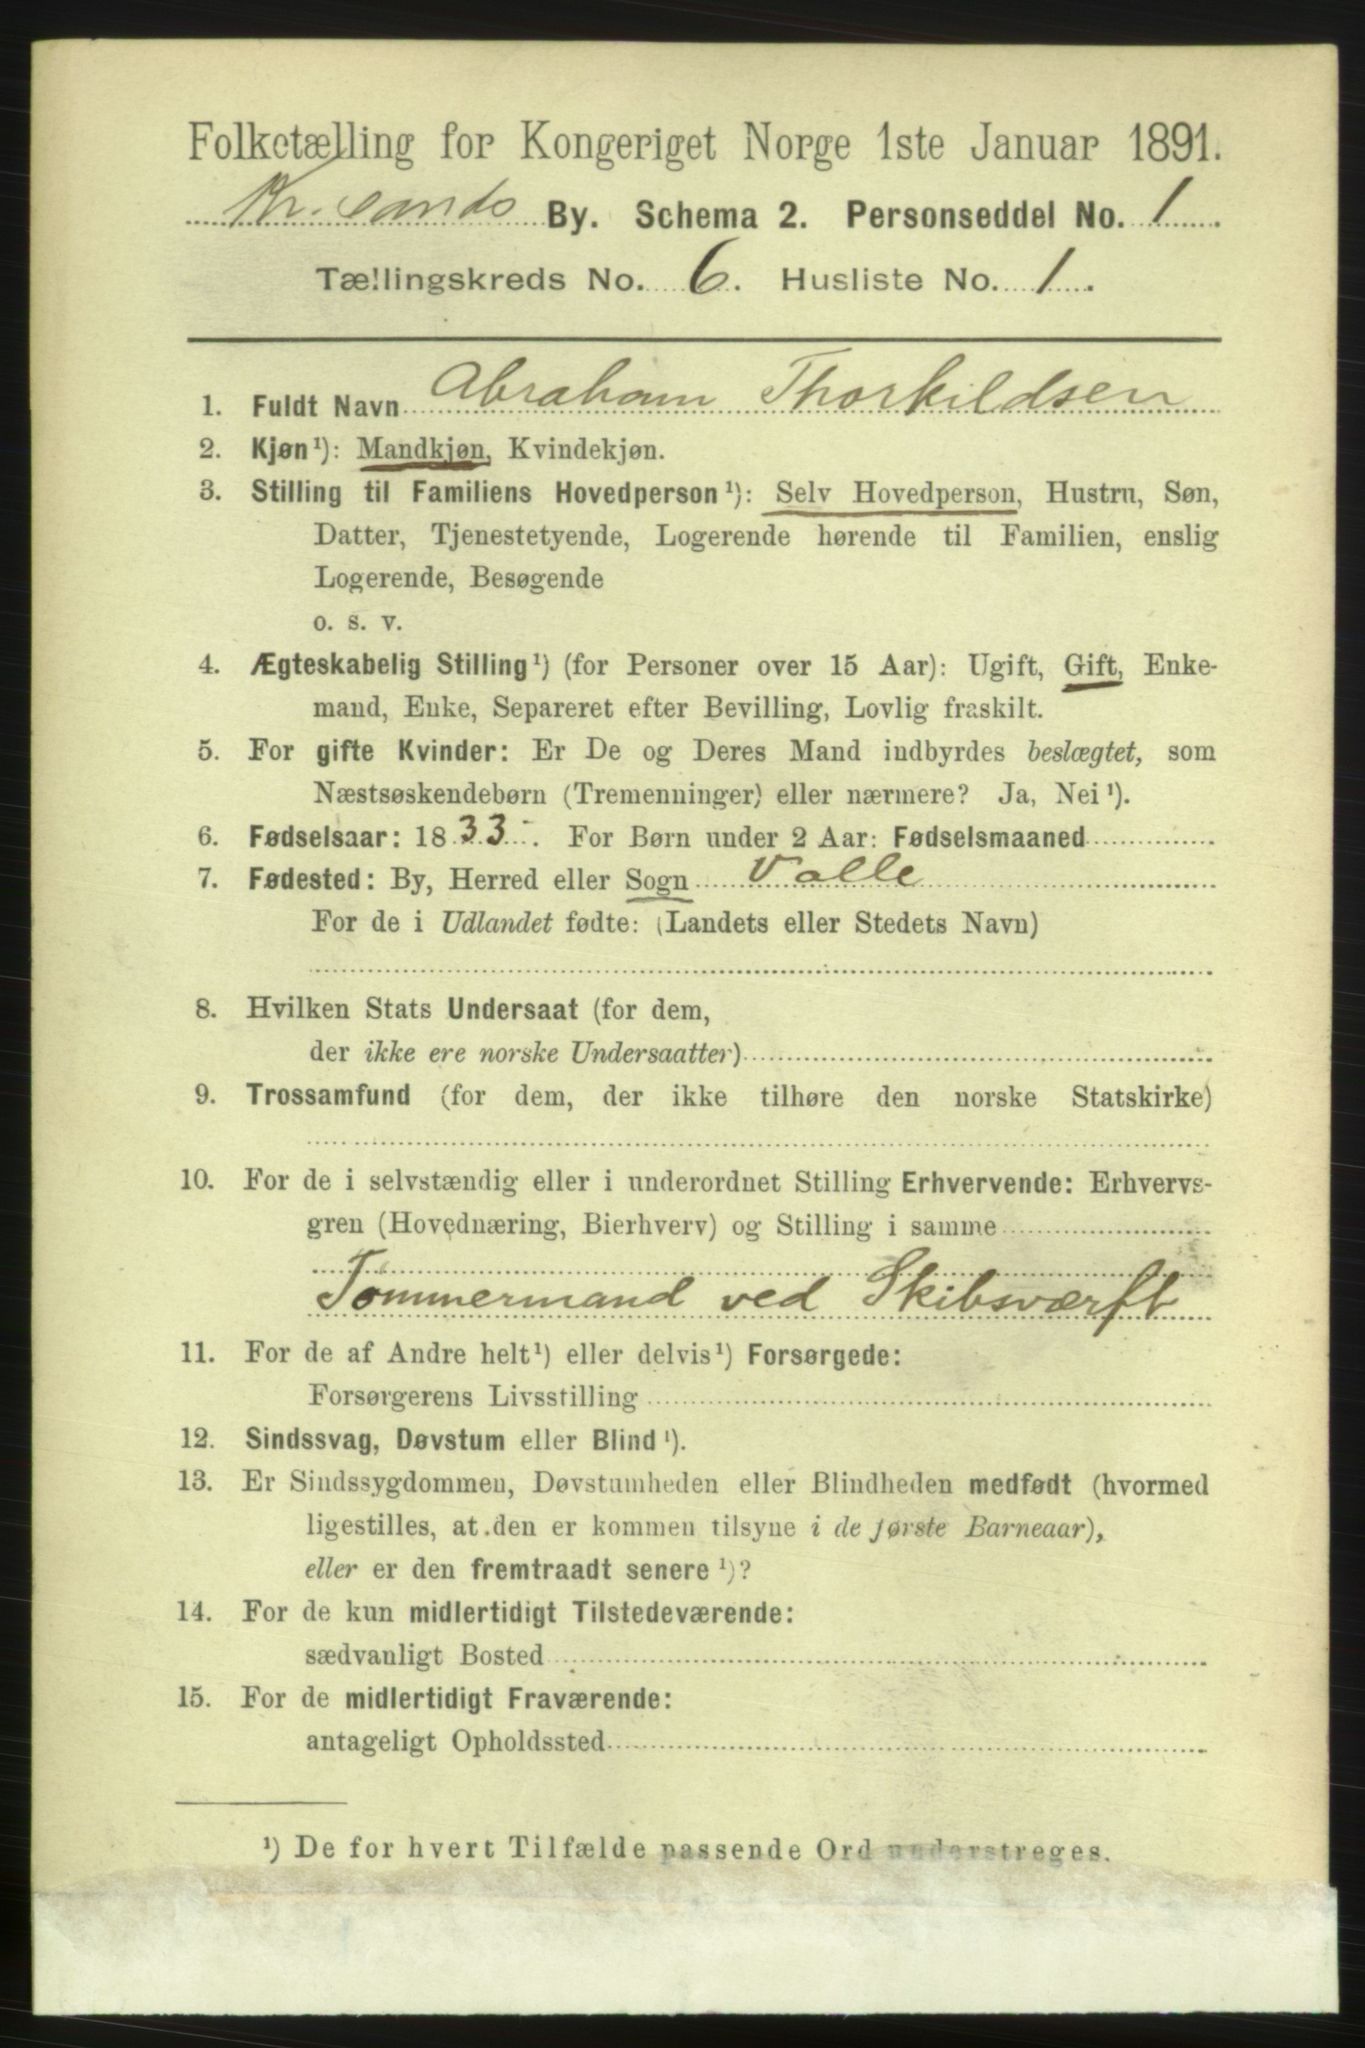 Folketælling for Kongeriget Norge 1ste Januar 1891.
Kr.sands By. Schema 2. Personseddel No. 1.
Tællingskreds No. 6. Husliste No. 1.
1. Fuldt Navn Abraham Thorkildsen
2. Kjøn¹): Mandkjøn, Kvindekjøn.
3. Stilling til Familiens Hovedperson¹): Selv Hovedperson, Hustru, Søn,
Datter, Tjenestetyende, Logerende hørende til Familien, enslig
Logerende, Besøgende
o. s. v.
4. Ægteskabelig Stilling¹) (for Personer over 15 Aar): Ugift, Gift, Enke-
mand, Enke, Separeret efter Bevilling, Lovlig fraskilt.
5. For gifte Kvinder: Er De og Deres Mand indbyrdes beslægtet, som
Næstsøskendebørn (Tremenninger) eller nærmere? Ja, Nei¹).
6. Fødselsaar: 1833. For Børn under 2 Aar: Fødselsmaaned
7. Fødested: By, Herred eller Sogn Valle
For de i Udlandet fødte: (Landets eller Stedets Navn)
8. Hvilken Stats Undersaat (for dem,
der ikke ere norske Undersaatter)
9. Trossamfund (for dem, der ikke tilhøre den norske Statskirke)
10. For de i selvstændig eller i underordnet Stilling Erhvervende: Erhvervs-
gren (Hovednæring, Bierhverv) og Stilling i samme
Tømmermand ved Skibsværft
11. For de af Andre helt¹) eller delvis¹) Forsørgede:
Forsørgerens Livsstilling
12. Sindssvag, Døvstum eller Blind¹).
13. Er Sindssygdommen, Døvstumheden eller Blindheden medfødt (hvormed
ligestilles, at den er kommen tilsyne i de første Barneaar),
eller er den fremtraadt senere¹)?
14. For de kun midlertidigt Tilstedeværende:
sædvanligt Bosted
15. For de midlertidigt Fraværende:
antageligt Opholdssted
¹) De for hvert Tilfælde passende Ord understreges.